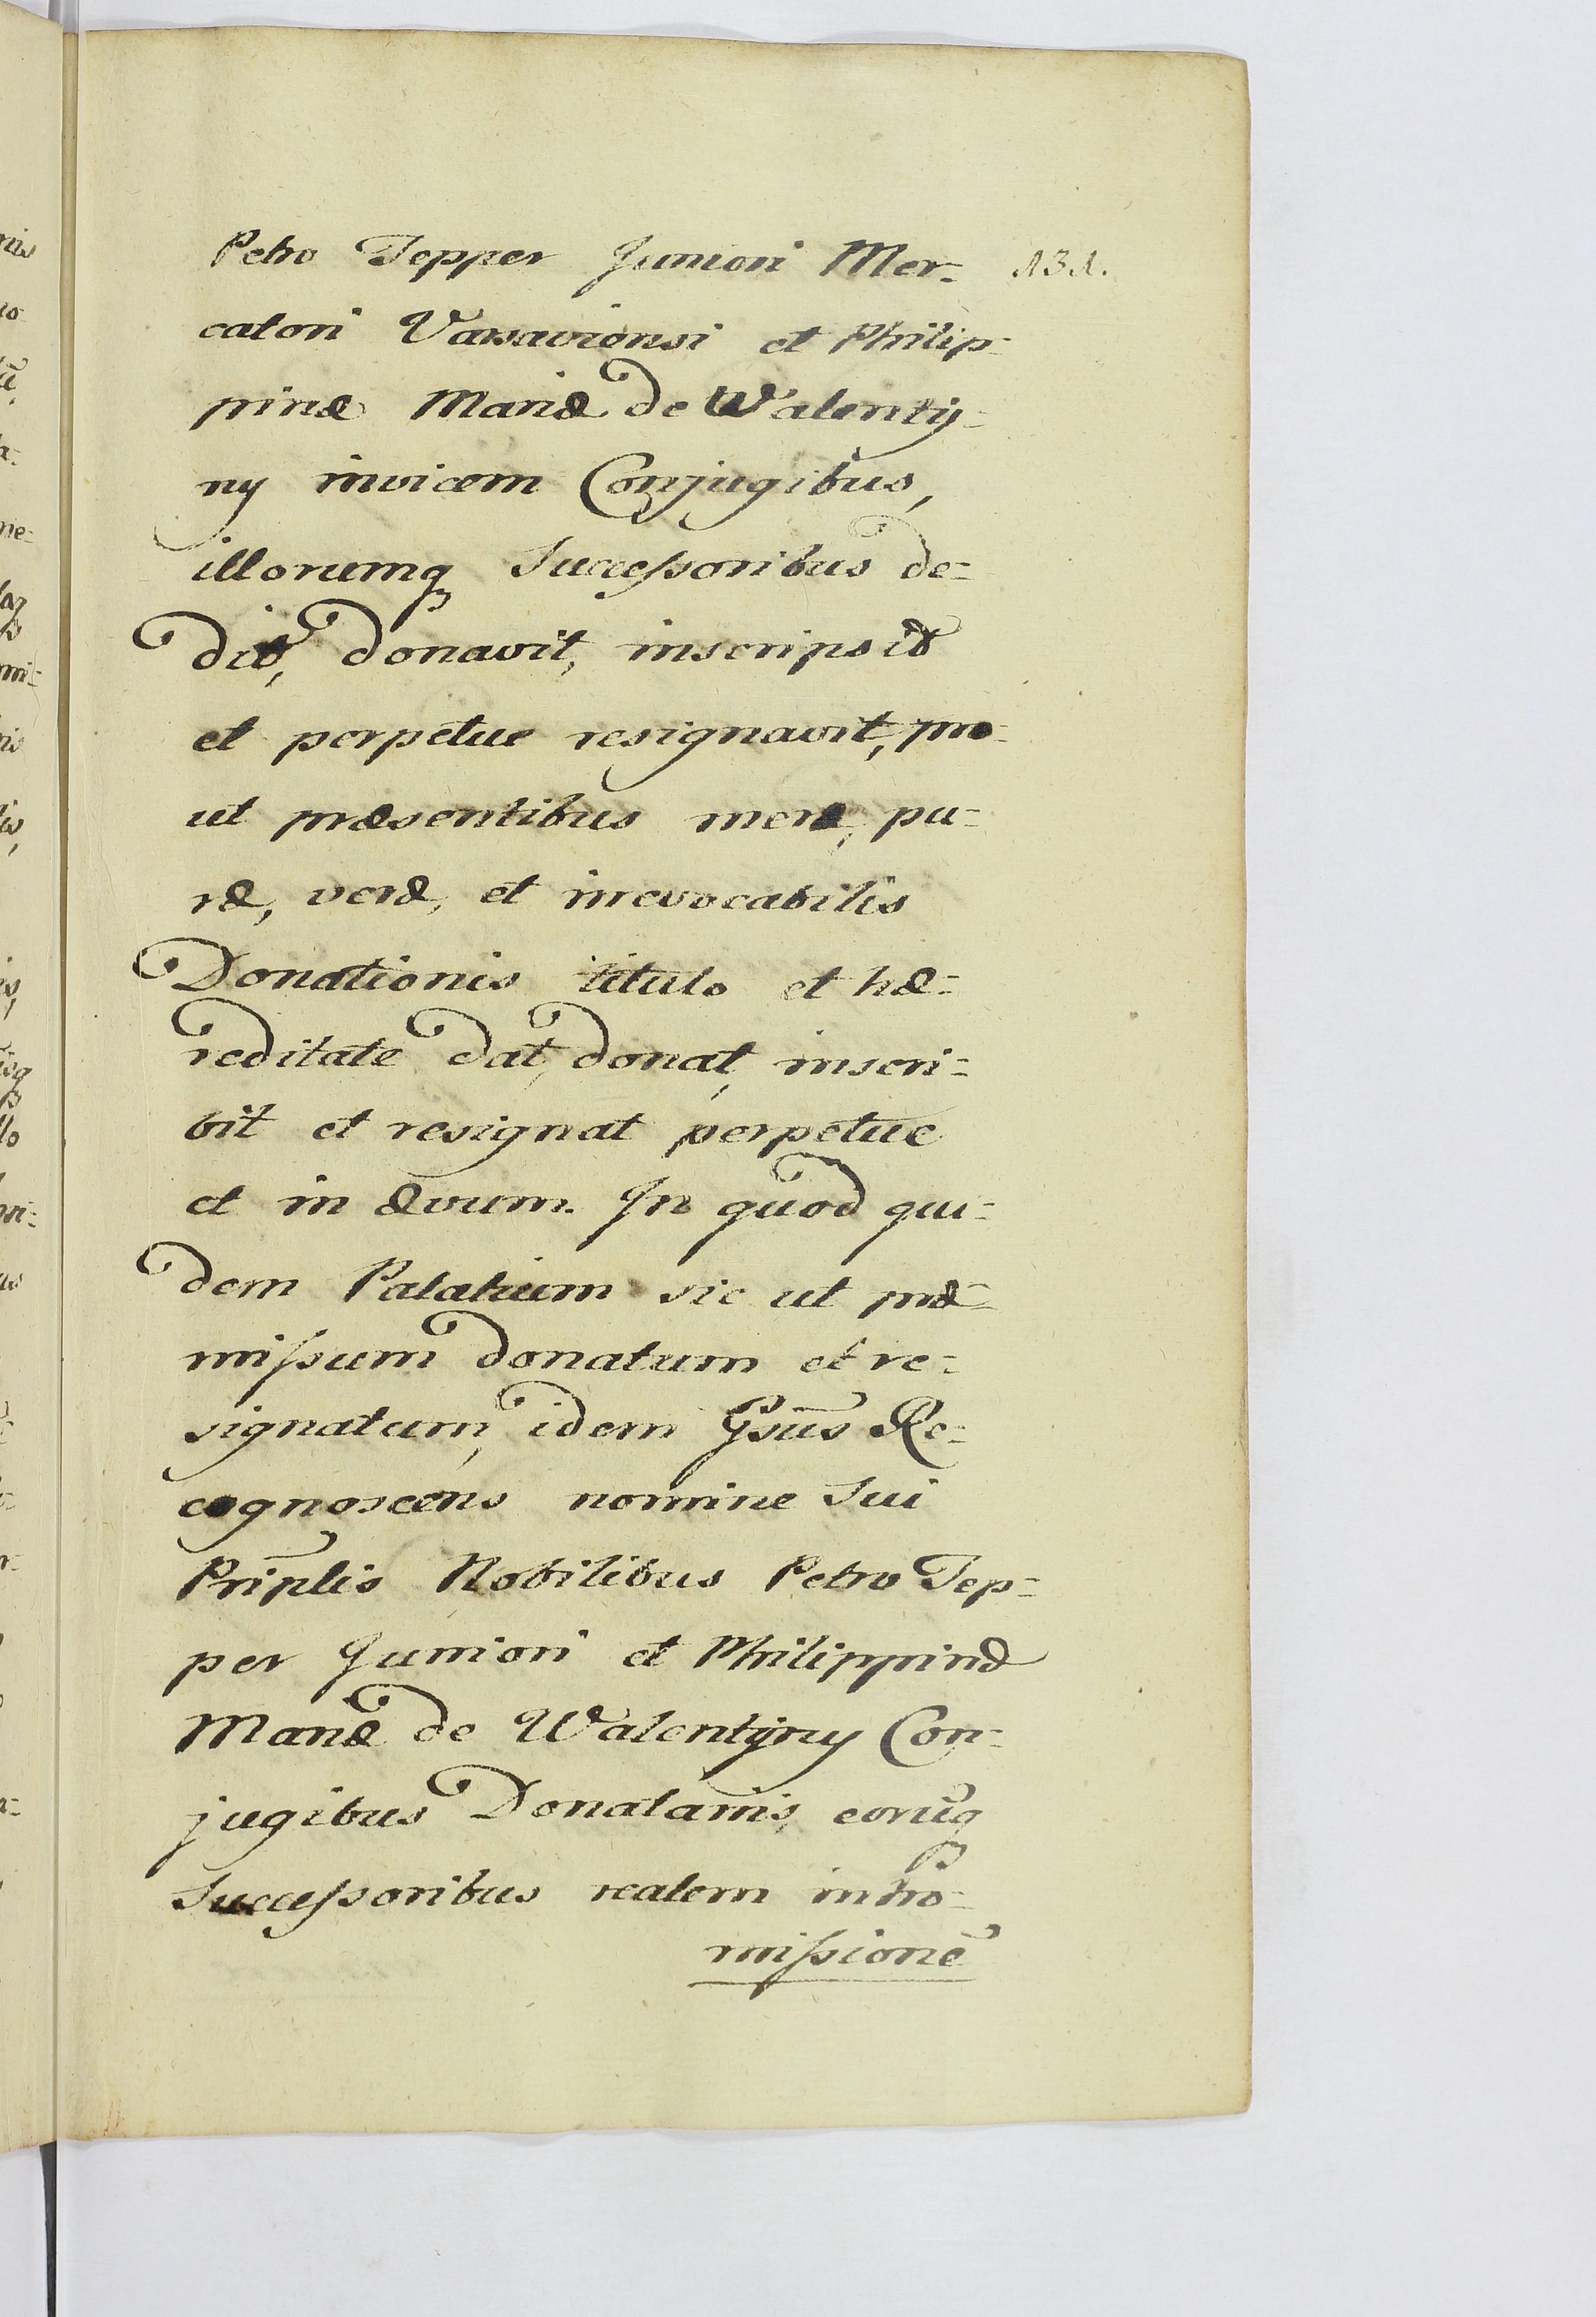 Petro Tepper Juniori Mer= 131.
catori Varsaviensi et Philip=
pinæ Mariæ de Walentÿ=
ny invicem Conjugibus,
illorumq Succeſsoribus de=
dit, donavit, inscripsit
et perpetue resignavit, pro=
ut præsentibus meræ, pu=
ræ, veræ, et irrevocabilis
Donationis titulo et hæ=
reditate dat, donat, inscri=
bit et resignat perpetue
et in ævum. In quod qui=
dem Palatium sic ut præ=
miſsum donatum et re=
signatum, idem Gsus Re=
cognoscens nomine sui
Priplis Nobilibus Petro Tep=
per Juniori et Philippinæ
Mariæ de Walentÿny Con=
jugibus Donatariis, eorūq
Succeſsoribus realem intro=
miſsionē